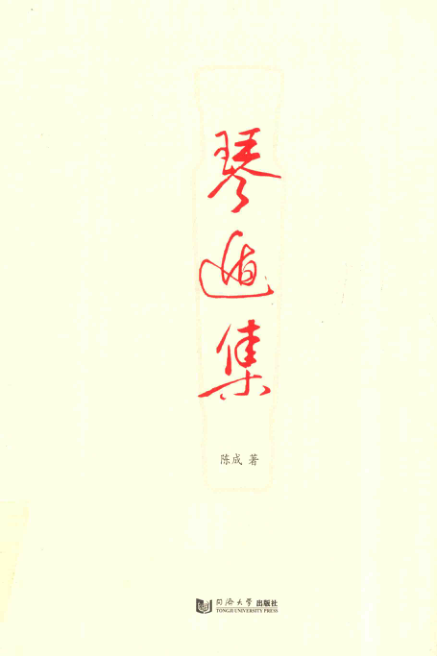 琴遁集
陈成 著
同济大学出版社
TONGJI UNIVERSITY PRESS